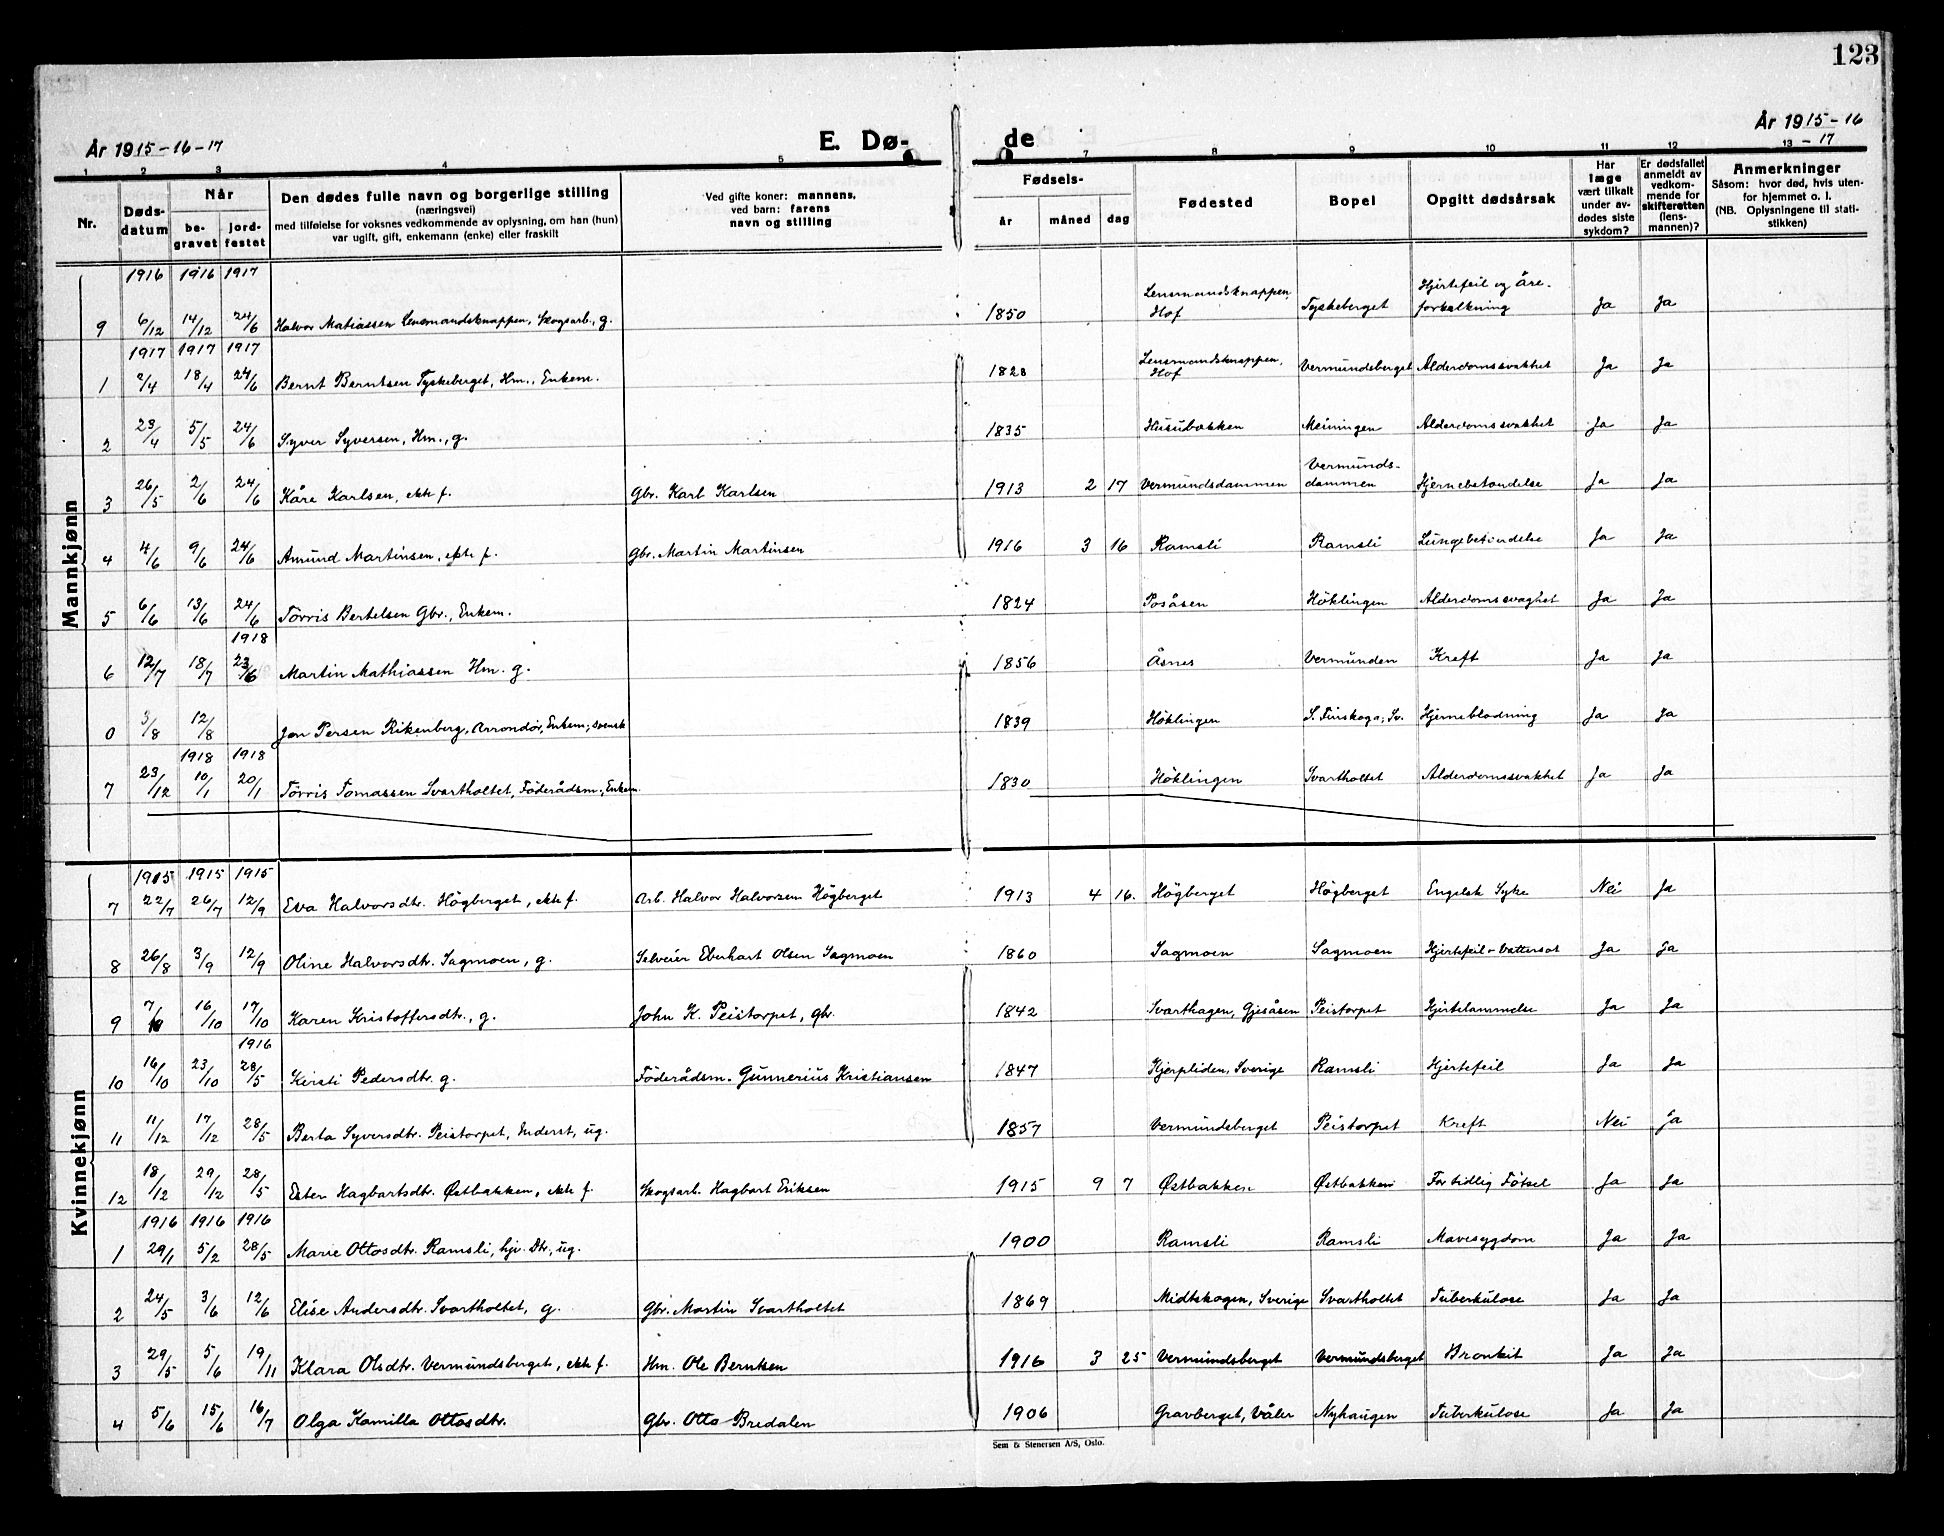 123
År 1915-16-17
E. Dø- de
År 1915-16
-17
1 2 3 4 5 7 8 9 10 11 12 13
Nr.
Døds-
datum
Når
be-
gravet
jord-
festet
Den dødes fulle navn og borgerlige stilling
(næringsvei)
med tilføielse for voksnes vedkommende av oplysning, om han (hun)
var ugift, gift, enkemann (enke) eller fraskilt
Ved gifte koner: mannens,
ved barn: farens
navn og stilling
Fødsels-
år måned dag
Fødested
Bopel
Opgitt dødsårsak
Har
læge
vært tilkalt
under av-
dødes siste
sykdom?
Er dødsfallet
anmeldt av
vedkom-
mende for
skifteretten
(lens-
mannen)?
Anmerkninger
Såsom: hvor død, hvis uten-
for hjemmet o. l.
(NB. Oplysningene til stati-
stikken)
Mannkjønn
1916 1916 1917
9 6/12 14/12 24/6 Halvor Matiassen Lensmandsknappen, Skogsarb., g. 1850 Lensmandsknappen, Hof Tyskeberget Hjertefeil og åre-
forkalkning Ja Ja
1917 1917 1917
1 2/4 18/4 24/6 Bernt Berntsen Tyskeberget, Hm., Enkem. 1828 Lensmandsknappen, Hof Vermundsberget Alderdomssvakhet Ja Ja
2 23/4 5/5 24/6 Syver Syversen, Hm., g. 1835 Husubakken Meiningen Alderdomssvakhet Ja Ja
3 26/5 2/6 24/6 Kåre Karlsen, ekte f. Gbr. Karl Karlsen 1913 2 17 Vermundsdammen Vermunds-
dammen Hjernebetendelse Ja Ja
4 4/6 9/6 24/6 Amund Martinsen, ekte f. Gbr. Martin Martinsen 1916 3 16 Ramsli Ramsli Lungebetendelse Ja Ja
5 6/6 13/6 24/6 Törris Bertelsen Gbr., Enkem. 1824 Posåsen Höklingen Alderdomssvaghet Ja Ja
1918
6 12/7 18/7 23/6 Martin Mathiassen Hm. g. 1856 Åsnes Vermunden Kreft Ja Ja
0 3/8 12/8 Jon Persen Rikenberg, Arrondör, Enkem., svensk 1839 Höklingen S. Finskoga, Sv. Hjerneblödning Ja Ja
1918 1918
7 23/12 10/1 20/1 Törris Tomassen Svartholtet, Föderådsm., Enkem. 1830 Höklingen Svartholtet Alderdomssvakhet Ja Ja
Kvinnekjønn
1915 1915 1915
7 22/7 26/7 12/9 Eva Halvorsdtr. Högberget, ekte f. Arb. Halvor Halvorsen Högberget 1913 4 16. Högberget Högberget Engelsk Syke Nei Ja
8 26/8 3/9 12/9 Oline Halvorsdtr. Sagmoen, g. Selveier Eberhart Olsen Sagmoen 1860 Sagmoen Sagmoen Hjertefeil - Vattersot Ja Ja
9 7/10 16/10 17/10 Karen Kristoffersdtr., g. John K. Peistorpet, gbr. 1842 Svarthagen, Gjesåsen Peistorpet Hjertelammelse Ja Ja
1916
10 16/10 23/10 28/5 Kirsti Pedersdtr. g. Föderådsm. Gunnerius Kristiansen 1847 Hjerpliden, Sverige Ramsli Hjertefeil Ja Ja
11 11/12 17/12 28/5 Berta Syversdtr. Peistorpet, Inderst, ug. 1857 Vermundsberget Peistorpet Kreft Nei Ja
12 18/12 29/12 28/5 Ester Hagbartsdtr. Østbakken, ekte f. Skogsarb. Hagbart Eriksen 1915 9 7 Østbakken Østbakken For tidlig Fötsel Ja Ja
1916 1916 1916
1 29/1 5/2 28/5 Marie Ottosdtr. Ramsli, hjv. Dtr., ug. 1900 Ramsli Ramsli Mavesygdom Ja Ja
2 24/5 3/6 12/6 Elise Andersdtr. Svartholtet, g. Gbr. Martin Svartholtet 1869 Midtskogen, Sverige Svartholtet Tuberkulose Ja Ja
3 29/5 5/6 19/11 Klara Olsdtr. Vermundsberget, ekte f. Hm. Ole Berntsen 1916 3 25 Vermundsberget Vermundsberget Bronkit Ja Ja
4 5/6 15/6 16/7 Olga Kamilla Ottosdtr. Gbr. Otto Bredalen 1906 Gravberget, Våler Nyhaugen Tuberkulose Ja Ja
Sem & Stenersen A/S, Oslo.